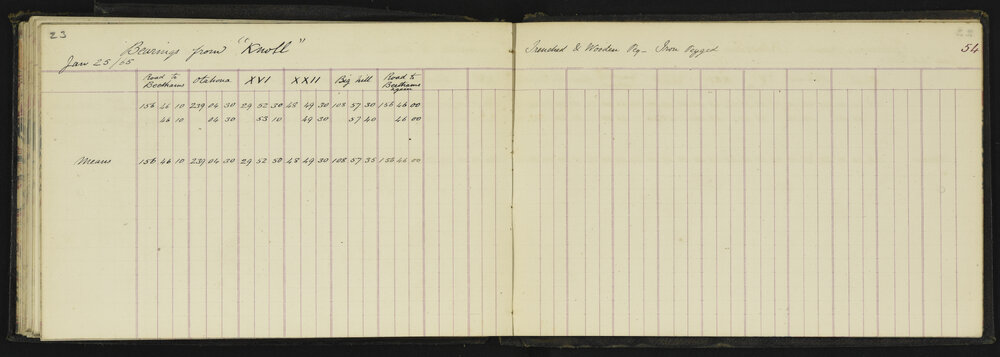 23
Bearings from "Knoll"
Jan 25/65
Road to Beethams Otahona XVI XXII Big hill Road to Beethams again
156 46 10 239 04 30 29 52 30 48 49 30 108 57 30 156 46 00
46 10 04 30 53 10 49 30 57 40 46 00
Means 156 46 10 239 04 30 29 52 50 48 49 30 108 57 35 156 46 00
Trenched & Wooden Peg - Iron Pegged
54